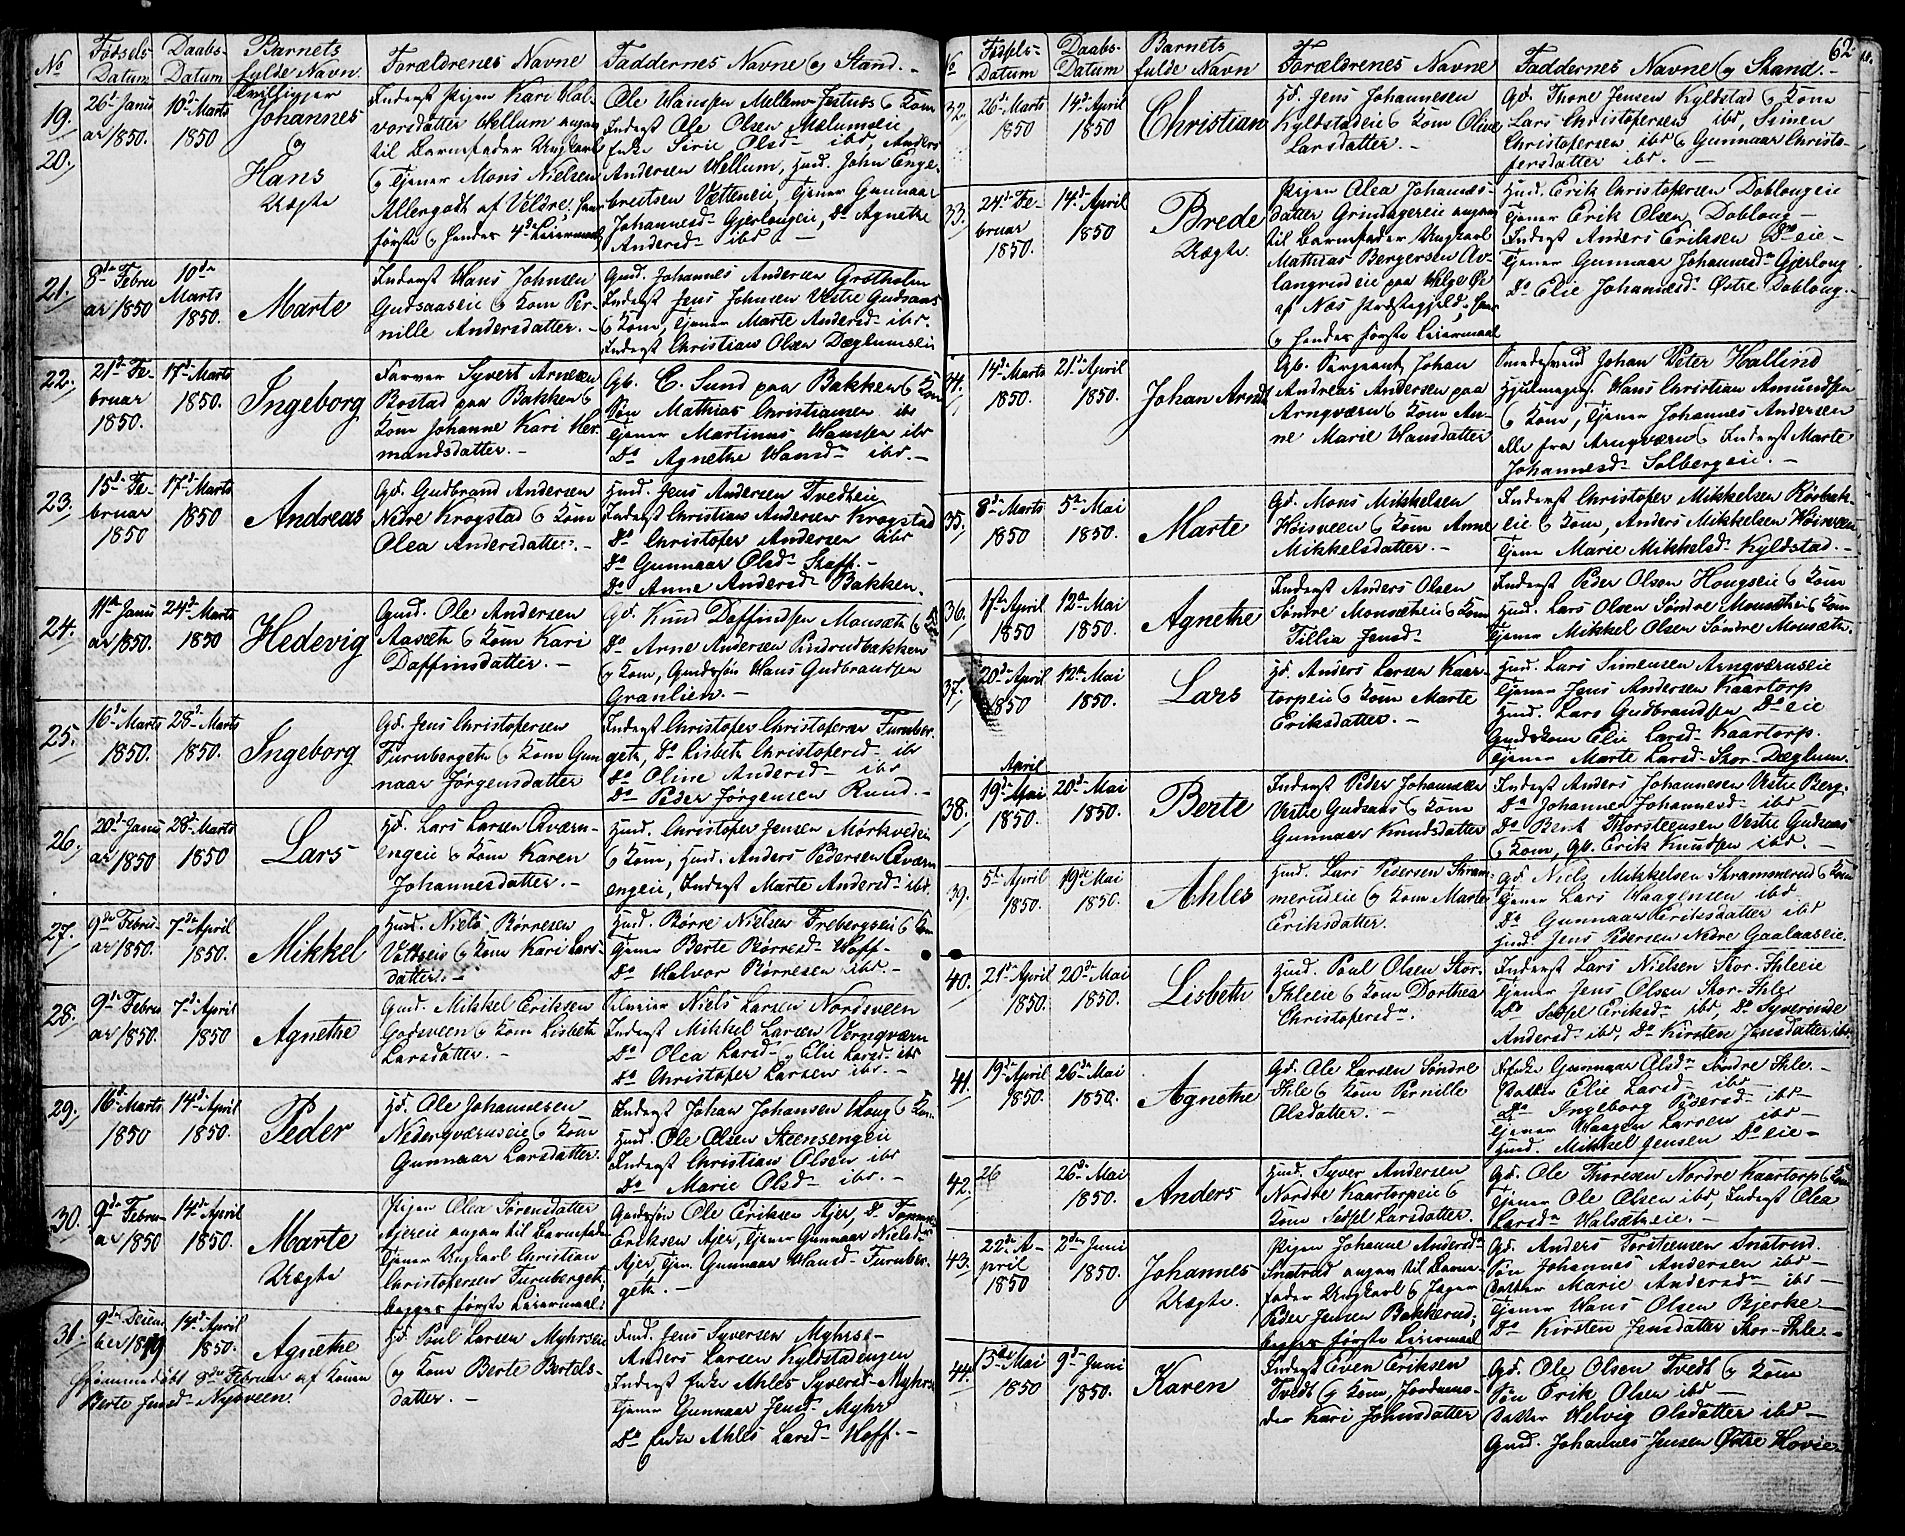 No Fødsels Datum Daabs- Datum Barnets fulde Navn. Forældrenes Navne Faddernes Navne og Stand. -
19. 20. 26d Janu ar 1850. 10d Marts 1850 Tvillinger Johannes og Hans Uægte
Inderst Pigen Kari Hal-
vorsdatter Hellum angav
til Barnefader Ungkarl
og Tjener Mons Nielsen
Allergodt af Veldre, hans
første og hendes 4de Leiermaal
Ole Hansen Mellem Jostnes og Kone
Inderst Ole Olsen Mælumseie
Enke Sirie Olsd- ibd, Anders
Andersen Hellum, Huusmd. John Enge-
bretsen Vætteneie, Tjener Gunnaar
Johannesd- Gjerlougeie, Do Agnethe
Andersd- ibd -
21. 8de Febru ar 1850 10de Marts 1850. Marte
Inderst Hans Johnsen
Gudsaaseie og Kone Per-
nille Andersdatter. -
Gmd. Johannes Andersen Grotholm
Inderst Jens Johnsen Vestre Gudsaas
og Kone, Tjener Marte Andersd- ibd.
Inderst Christian Olsen Dæglumseie
22. 21de Fe- bruar 1850. 17d Marts 1850. Ingeborg
Farver Syvert Arnesen
Bostad paa Bakken og
Kone Johanne Kari Her-
mandsdatter. -
Gb. C. Lund paa Bakken og Kone
Søn Mathias Christiansen ibd
Tjener Martinus Hansen ibd
Do Agnethe Hansd- ibd. -
23. 15de Fe- bruar 1850 17d Marts 1850 Andreas
Gd. Gudbrand Andersen
Nedre Krogstad og Kone
Olea Andersdatter. -
Huusmd. Jens Andersen Tvedteie
Inderst Christian Andersen Krogstad
Do Christofer Andersen ibd
Do Gunnaar Olsd- Skaff. -
Do Anne Andersd- Bakken.
24. 11te Janu ar 1850. 24d Marts 1850 Hedevig
Gmd. Ole Andersen
Aasæth og Kone Kari
Daffinsdatter. -
Gd. Knud Daffindsen Monsæth og Kone
Do Arne Andersen Rudsrudbakken
og Kone, Gmdssøn Hans Gudbrandsen
Granlien. -
25. 16d Marts 1850. 28d Marts 1850. Ingeborg
Gd. Jens Christofersen
Furuberget og Kone Gun
naar Jørgensdatter
Inderst Christofer Christofersen Furuber-
get, Do Lisbeth Christofersd- ibd
Do Oline Andersd- ibd
Do Peder Jørgensen Rund. -
26. 20d Janu ar 1850 28d Marts 1850 Lars
Hd. Lars Larsen Qværn-
engeie og Kone Karen
Johannesdatter. -
Huusmd. Christofer Jensen Mørkvedeie
og Kone, Huusmd. Anders Pedersen Qværn
engeie, Inderst Marte Andersd- ibd.
27. 9de Febru ar 1850. 7de April 1850. Mikkel
Huusmd. Niels Børresen
og Kone Kari Lars-
datter. -
Huusmd. Børre Nielsen Frebergseie og Kone
Tjener Berte Børresd- Hoff. -
Do Halvor Børresen ibd. -
28. 9de Febru ar 1850. 7de April 1850 Agnethe
Gmd. Mikkel Eriksen
Godsveen og Kone Lisbeth
Larsdatter. -
Niels Larsen Nordsveen
Inderst Mikkel Larsen Vernqværn
Do Olea Larsd- og Elie Larsd- ibd
Do Christofer Larsen ibd. -
29. 16d Marts 1850 14d April 1850. Peder
Hd. Ole Johannesen
Nederqværnseie og Kone
Gunnaar Larsdatter.
Inderst Johan Johansen Houg og Kone.
Huusmd. Ole Olsen Steensengeie
Inderst Christian Olsen ibd
Do Marie Olsd- ibd. -
30. 9de Febru ar 1850 14d April 1850. Marte Uægte
Pigen Olea Sørensdatter
Ajereie angav til Barnefader
Tjener Ungkarl Christian
Christofersen Furuberget,
begges første Leiermaal.
Gaardssøn Ole Eriksen Ajer, Do
Eriksen Ajer, Tjener Gunnaar Nielsd-
Ajer, Tjen. Gunnaar Hansd- Furuber-
get. -
31. 9de ber 1849 14d April 1850. Agnethe
Hjemmedøbt 8de Februar af Konen
Berte Jensd- Nysveen.
Hd. Poul Larsen Myhrseie
og Kone Berte Bertels-
datter. -
Huusmd. Jens Syversen Myhrs-
Anders Larsen Kyldstadengen
Inderst Enke Ahles Syversd- Myhrs
Tjener Gunnaar Jensd- Myhr
Do Enke Ahles Larsd- Hoff. -
62
No Fødsels- Datum Daabs- Datum Barnets fulde Navn Forældrenes Navne Faddernes Navne og Stand. -
32. 26d Marts 1850 14d April 1850 Christian
Hd. Jens Johannesen
Kyldstadeie og Kone Olive
Larsdatter. -
Gd. Thore Jensen Kyldstad og Kone
Lars Christofersen ibd, Simen
Christofersen ibd og Gunnaar Christo-
fersdatter ibd. -
33. 24de Fe- bruar 1850. 14d April 1850 Brede Uægte.
Pigen Olea Johannes-
datter Grindagereie angav
til Barnefader Ungkarl
Mathias Bergersen Av-
langrudeie paa Helgø Ø
af Næs Præstegjeld, hans
og hendes første Leiermaal
Huusmd. Erik Christofersen Doblougeie
Tjener Erik Olsen Doblong -
Inderst Anders Eriksen Do eie -
Tjener Gunnaar Johannesd- Gjerloug
Do Elie Johannesd- Østre Doblong.
34. 14d Marts 1850. 21d April 1850. Johan Arndt
Gb. Sergeant Johan
Andreas Andersen paa
Arnqværn og Kone An-
ne Marie Hansdatter
Smedsvend Johan Peter Hallind
Hjulmager Hans Christian Amundsen
og Kone, Tjener Johannes Andersen
alle fra Arnqværn og Inderst Marte
Johannesd- Solbergeie. -
35. 8de Marts 1850 5te Mai 1850. Marte
Gd. Mons Mikkelsen
Høisveen og Kone Anne
Mikkelsdatter. -
Inderst Christofer Mikkelsen Rørbæk-
eie og Kone, Anders Mikkelsen Høisveen
Tjener Marie Mikkelsd- Kyldstad. -
36. 17de April 1850 12te Mai 1850. Agnethe
Inderst Anders Olsen
Søndre Monsætheie og Kone
Tillia Jensd-
Inderst Peder Olsen Hougseie og Kone
Huusmd. Lars Olsen Søndre Monsætheie og Kone
Tjener Mikkel Olsen Søndre Monsæth.
37. 20de April 1850 12te Mai 1850. Lars
Hd. Anders Larsen Kaar-
torpeie og Kone Marte
Eriksdatter. -
Huusmd. Lars Simensen Arnqværnseie
Tjener Jens Andersen Kaartorp
Huusmd. Lars Gudbrandsen Do eie
Gmdskone Elie Larsd- Kaartorp.
Tjener Marte Larsd- Stor-Dæglum.
38. April 19d Mai 1850. 20de Mai 1850. Berte
Inderst Peder Johannesen
Vestre Gudsaas og Kone
Gunnaar Knudsdatter
Inderst Anders Johannesen Vestre Berg.
Do Johanne Johannesd- ibd
Do Bent Thorsteensen Vestre Gudsaas
og Kone, Gb. Erik Knudsen ibd. -
39. 5te April 1850. 19de Mai 1850. Ahles
Huusmd. Lars Pedersen Skram-
merudeie og Kone Marte
Eriksdatter.
Gd Niels Mikkelsen Skrammerud og Kone
Tjener Lars Haagensen ibd
Do Gunnaar Eriksdatter ibd
Huusmd. Jens Pedersen Nedre Gaalaaseie.
40. 21de April 1850. 20de Mai 1850. Lisbeth
Huusmd. Poul Olsen Stor-
Ihleeie og Kone Dorthea
Christofersdr.
Inderst Lars Nielsen Stor-Ihleeie
Tjener Jens Olsen Stor-Ihle
Do Sidsel Eriksd- ibd, Do Syverinde
Andersd- ibd, Do Kirsten Jensdatter ibd
41. 19de April 1850. 26de Mai 1850. Agnethe
Gd. Ole Larsen Søndre
Ihle og Kone Pernille
Olsdatter. -
Enke Gunnaar Olsdr Søndre Ihle. -
Datter Elie Larsd- ibd -
Do Ingeborg Pedersd- ibd -
Tjener Haagen Larsen ibd -
Huusmd. Mikkel Jensen Do eie -
42. 26 26de Mai 1850. Anders
Huusmd. Syver Andersen
Nordre Kaartorpeie og
Kone Sidsel Larsdatter.
Gd. Ole Thoresen Nordre Kaartorp og Kone
Tjener Ole Olsen ibd, Inderst Olea
Larsdr Halsætheie. -
43. 22de A- pril 1850 2den Juni 1850. Johannes Uægte.
Pigen Johanne Andersd-
Snatrud angav til Barne-
fader Ungkarl og Jæger
Peder Jensen Bakkerud,
begges første Leiermaal
Gd. Anders Torsteensen Snatrud.
Søn Johannes Andersen ibd -
Datter Marie Andersdr ibd -
Tjener Hans Olsen Bjerke -
Do Kirsten Jensdatter Stor-Ihle. -
44. 13de Mai 1850 9de Juni 1850. Karen
Inderst Even Eriksen
Tvedt og Kone, Jordemo-
der Kari Johnsdatter
Gd. Ole Olsen Tvedt og Kone
Søn Erik Olsen ibd -
Datter Helvig Olsdatter ibd -
Gmd. Johannes Jensen Østre Hovie -